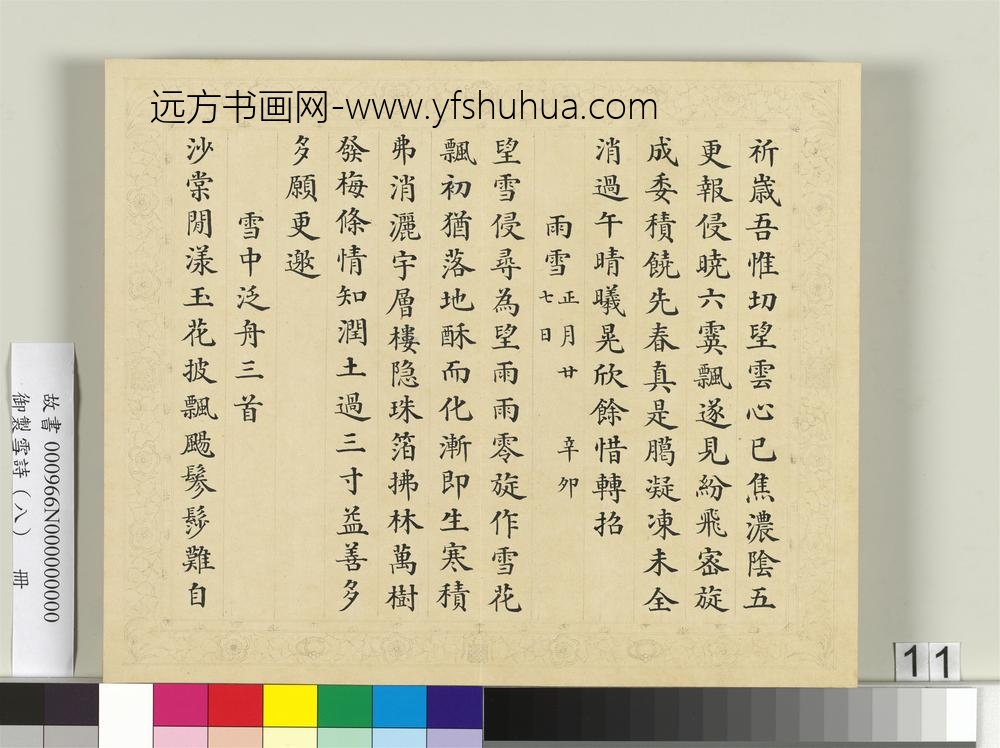 远方书画网-www.yfshuhua.com
祈歳吾惟切望雲心已焦濃陰五
更報侵曉六霙飄遂見紛飛密旋
成委積饒先春真是臈凝凍未全
消過午晴曦晃欣餘惜轉招
雨雪 正月廿七日 辛夘
望雪侵尋為望雨雨零旋作雪花
飄初猶落地酥而化漸即生寒積
弗消灑宇層樓隐珠箔拂林萬樹
發梅條情知潤土過三寸益善多
多願更邀
雪中泛舟三首
沙棠閒漾玉花披飄颺鬖髿難自
故書 000966N000000000
御製雪詩（八） 冊
11